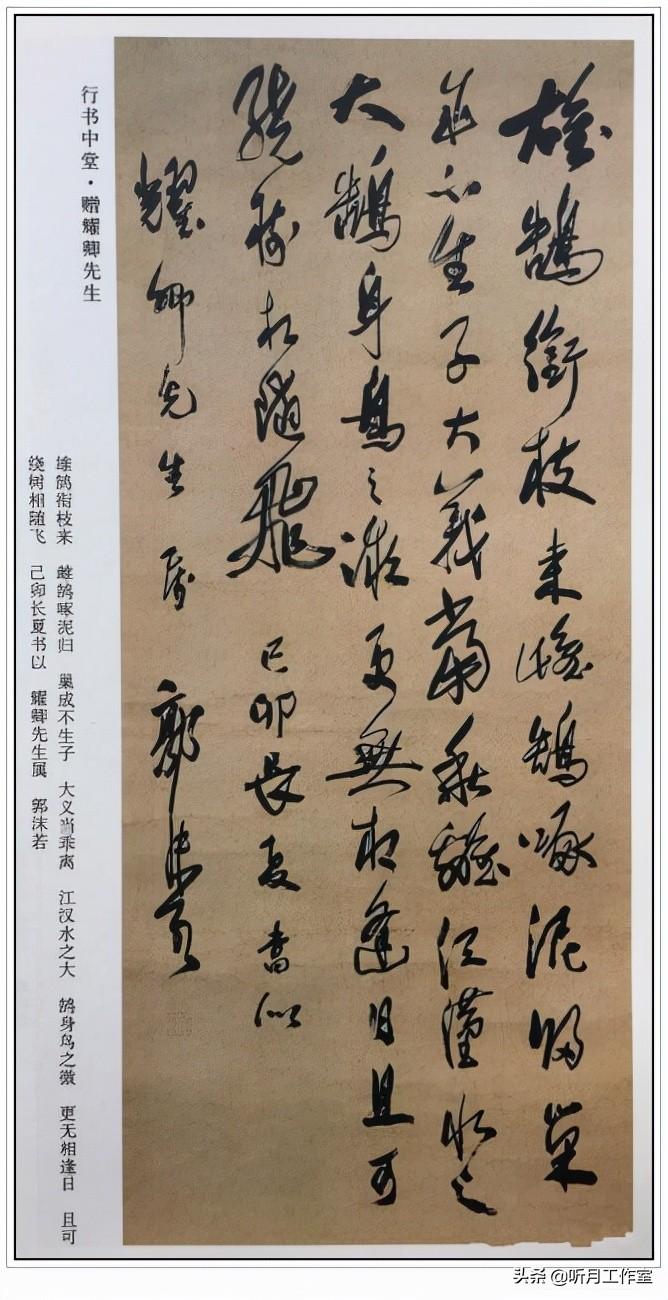 雄鵠銜枝來雌鵠啄泥歸巢
成不生子大義當乖離江漢水之
大鵠身鳥之微更無相逢日且可
繞樹相隨飛 己卯長夏書似
耀卿先生属 郭沫若
行书中堂·赠耀卿先生
雄鹄衔枝来 雌鹄啄泥归 巢成不生子 大义当乖离 江汉水之大 鹄身鸟之微 更无相逢日 且可
绕树相随飞 己卯长夏书以 耀卿先生属 郭沫若
头条 @听月工作室